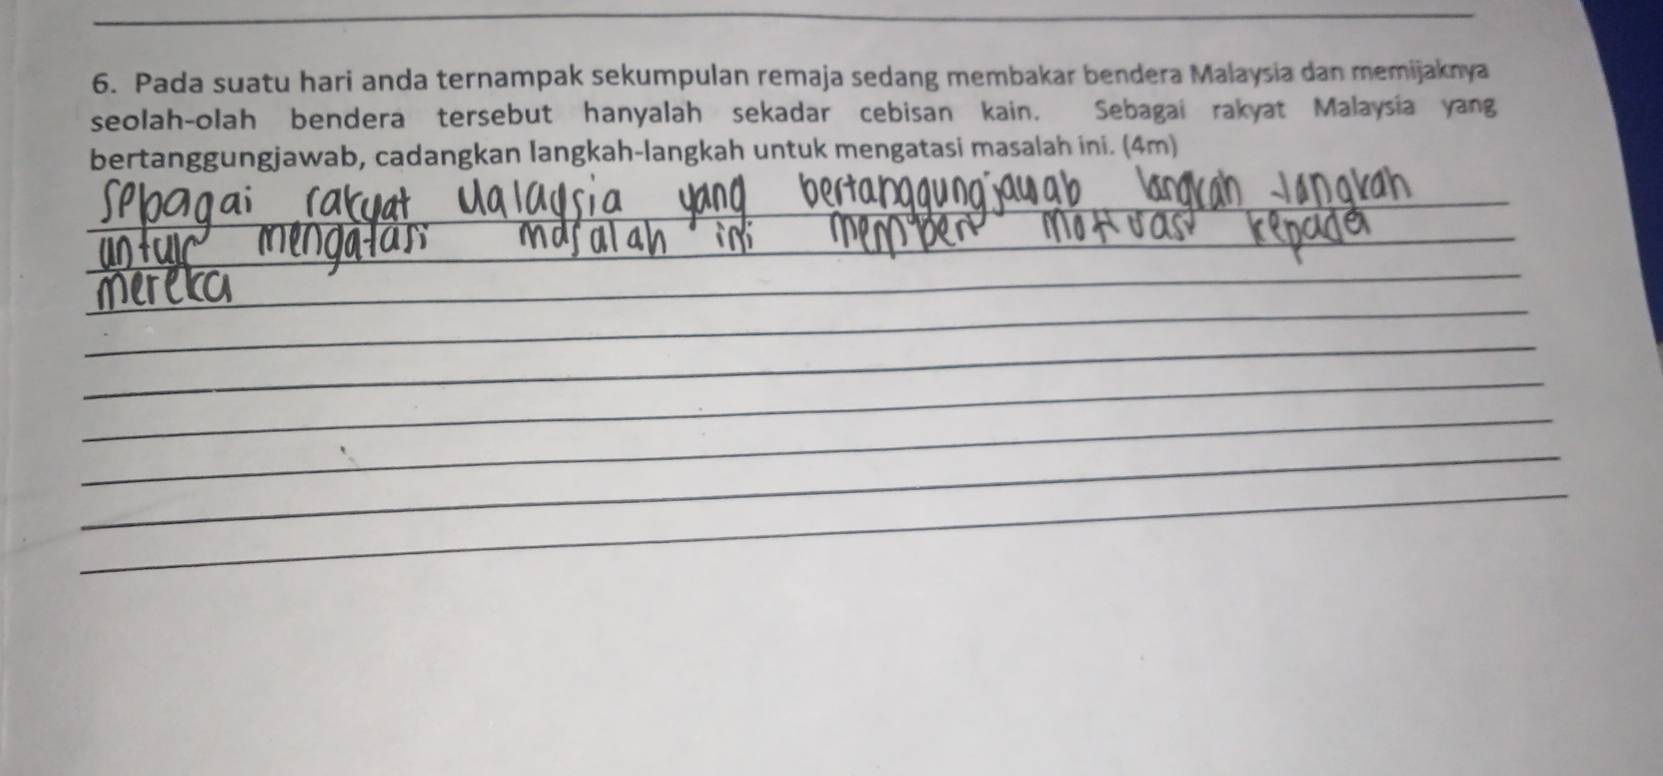 6. Pada suatu hari anda ternampak sekumpulan remaja sedang membakar bendera Malaysia dan memijaknya
seolah-olah bendera tersebut hanyalah sekadar cebisan kain. Sebagai rakyat Malaysia yang
bertanggungjawab, cadangkan langkah-langkah untuk mengatasi masalah ini. (4m)
sebagai rakyat Malaysia yang bertanggungjawab langkah-langkah
untuk mengatasi masalah ini memberi motivasi kepada
mereka